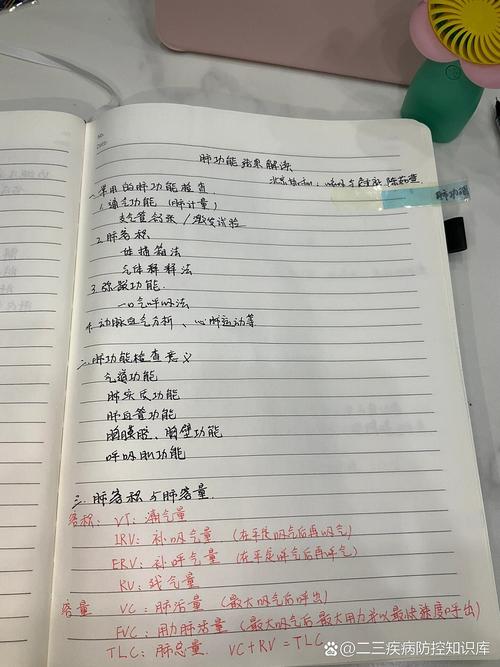 No.
Date.
肺功能结果解读
北京协和:呼吸与危重症 陈茹萱
肺功能
一.常用的肺功能检查
1.通气功能(肺计量)
支气管舒张/激发试验
2.肺容积
体描箱法
气体稀释法
3.弥散功能.
一口气呼吸法
4.动脉血气分析、心肺运动等
二.肺功能检查意义
气道功能
肺实质功能
肺血管功能
胸膜腔、胸壁功能
呼吸肌功能
三.肺容积与肺容量.
容积:VT:潮气量
IRV:补吸气量(在平息吸气后再吸气)
ERV:补呼气量(在平息呼气后再呼气)
RV:残气量
容量 VC:肺活量(最大吸气后呼出)
FVC:用力肺活量(最大吸气后最大用力并以最快速度呼出)
TLC:肺总量. VC+RV=TLC
@二三疾病防控知识库